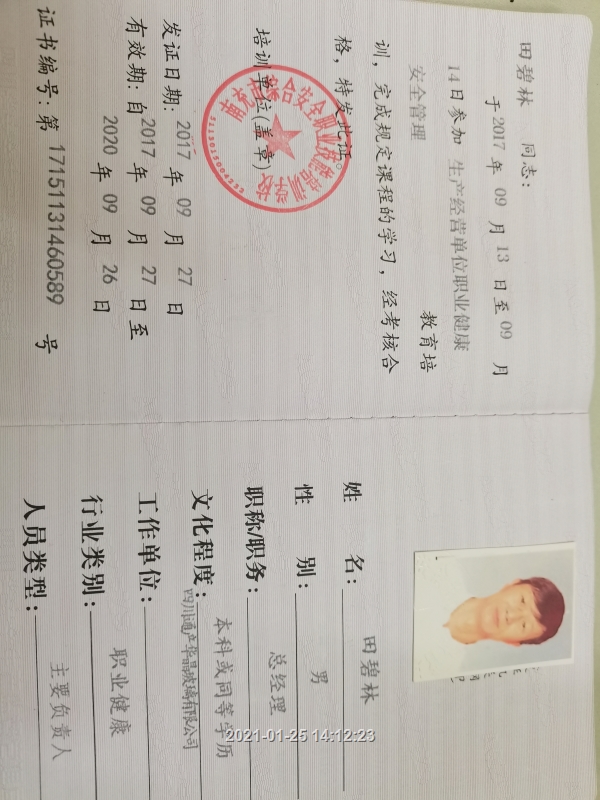 姓 名： 田碧林
性 别： 男
职称/职务： 总经理
文化程度： 本科或同等学历
工作单位： 四川通产华晶玻璃有限公司
行业类别： 职业健康
人员类型： 主要负责人
田碧林 同志：
于2017年 09 月 13 日至 09 月
14日参加 生产经营单位职业健康
安全管理 教育培
训，完成规定课程的学习，经考核合
格，特发此证。
培训单位(盖章)
发证日期： 2017 年 09 月 27 日
有效期：自 2017 年 09 月 27 日至
2020 年 09 月 26 日
证书编号：第 17151131460589 号
2021-01-25 14:12:23